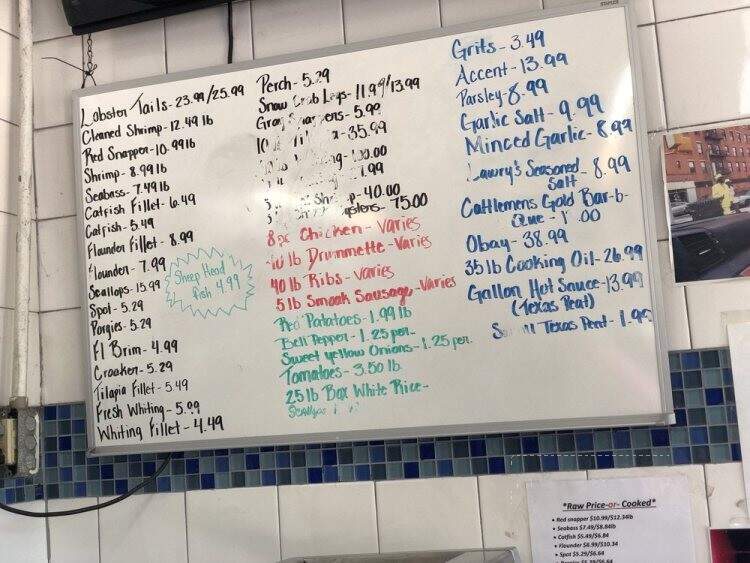 Lobster Tails - 23.99/25.99
Cleaned Shrimp - 12.49 lb
Red Snapper - 10.99 lb
Shrimp - 8.99 lb
Seabass - 7.49 lb
Catfish Fillet - 6.49
Catfish - 5.49
Flounder Fillet - 8.99
Flounder - 7.99
Scallops - 15.99
Spot - 5.29
Porgies - 5.29
Fl Brim - 4.99
Croaker - 5.29
Tilapia Fillet - 5.49
Fresh Whiting - 5.99
Whiting Fillet - 4.49
Sheep Head
fish 4.99
Perch - 5.29
Snow Crab Legs - 11.99/13.99
5.99
35.99
.00
.99
40.00
75.00
8pc Chicken - Varies
lb Drummette - Varies
40 lb Ribs - Varies
5 lb Smoak Sausage - Varies
Red Patatoes - 1.99 lb
Bell Pepper - 1.25 per.
Sweet Yellow Onions - 1.25 per.
Tomatoes - 3.50 lb
25 lb Box White Rice -
Grits - 3.49
Accent - 13.99
Parsley - 8.99
Garlic Salt - 9.99
Minced Garlic - 8.99
Lawry's Seasoned - 8.99
Salt
Cattlemens Gold Bar-b-
Que - .00
Obay - 38.99
35 lb Cooking Oil - 26.99
Gallon Hot Sauce - 13.99
(Texas Peat)
Texas Peat - 1.99
*Raw Price-or- Cooked*
• Red snapper $10.99/$12.34lb
• Seabass $7.49/$8.84lb
• Catfish $5.49/$6.84
• Flounder $8.99/$10.34
• Spot $5.29/$6.64